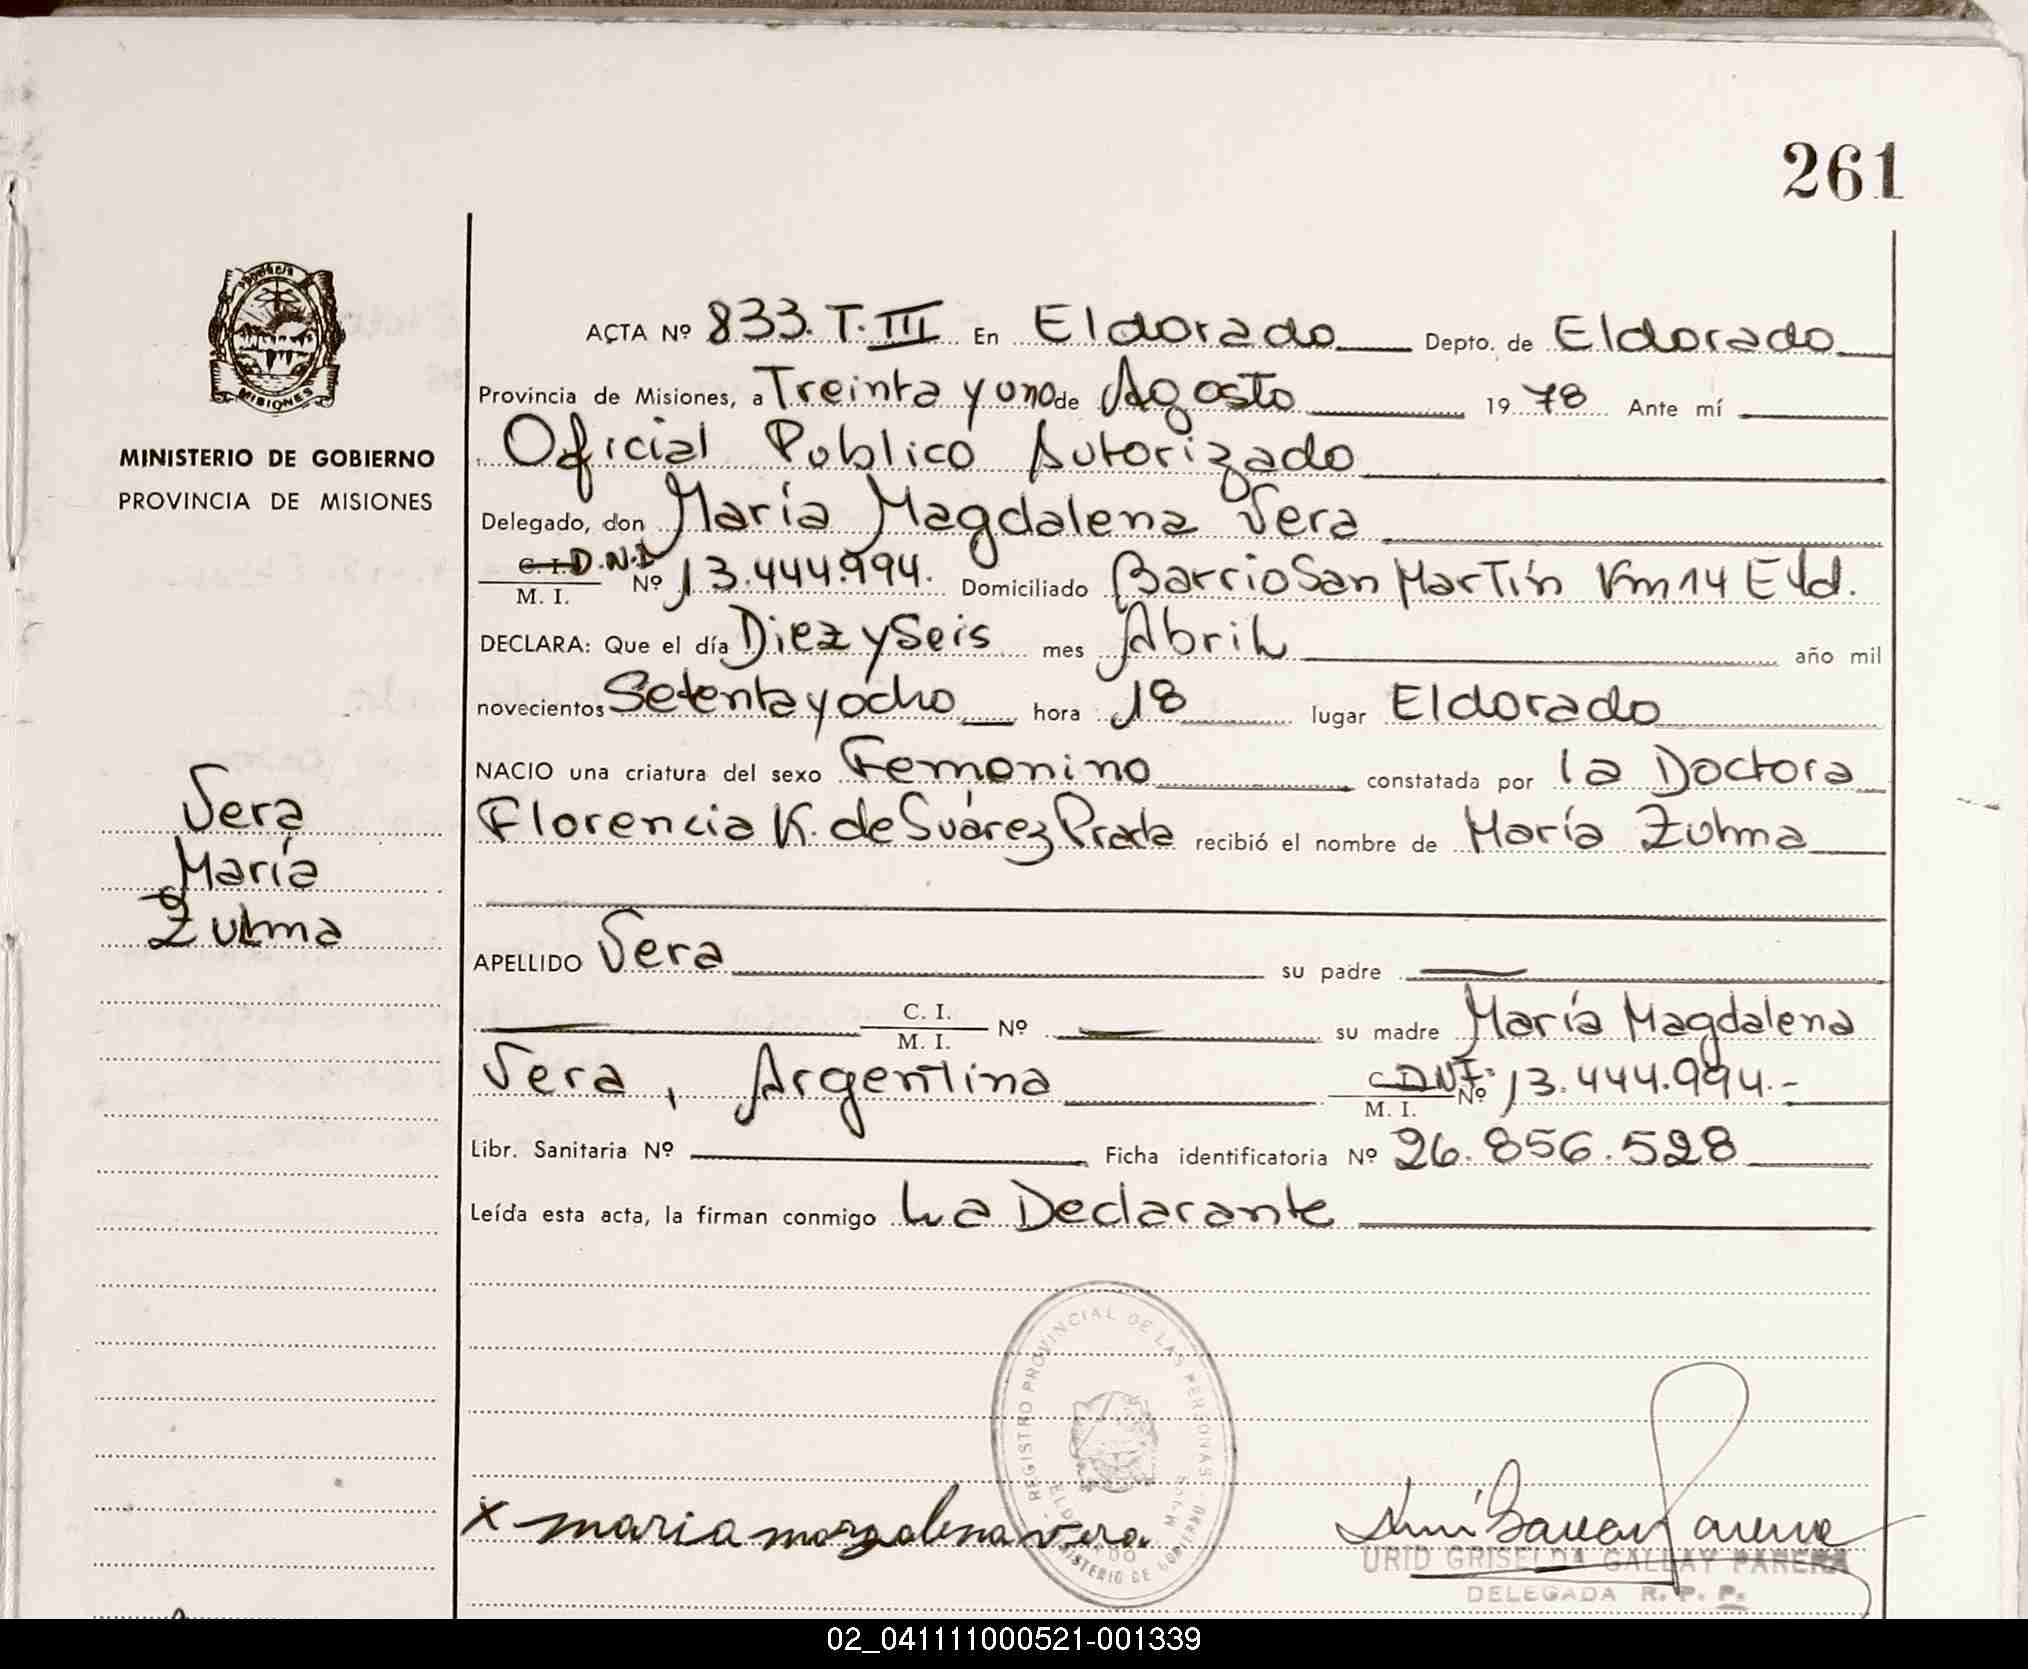 261
PROVINCIA
MISIONES
MINISTERIO DE GOBIERNO
PROVINCIA DE MISIONES
ACTA Nº 833. T. III En Eldorado Depto. de Eldorado
Provincia de Misiones, a Treinta y uno de Agosto 1978 Ante mí
Oficial Público Autorizado
Delegado, don María Magdalena Vera
C. I. D.N.I
M. I. Nº 13.444.994. Domiciliado Barrio San Martín Km 14 Eld.
DECLARA: Que el día Diez y Seis mes Abril año mil
novecientos Setenta y ocho hora 18 lugar Eldorado
NACIO una criatura del sexo Femenino constatada por la Doctora
Florencia K. de Suárez Prada recibió el nombre de María Zulma
Vera
María
Zulma
APELLIDO Vera su padre
C. I.
M. I. Nº su madre María Magdalena
Vera, Argentina C DNI. M. I. Nº 13.444.994.-
Libr. Sanitaria Nº Ficha identificatoria Nº 26.856.528
Leída esta acta, la firman conmigo La Declarante
REGISTRO PROVINCIAL DE LAS PERSONAS
ELDORADO
MINISTERIO DE GOBIERNO
x maria magdalena vera
URID GRISELDA GALLAY PARERA
DELEGADA R. P. P.
02_041111000521-001339